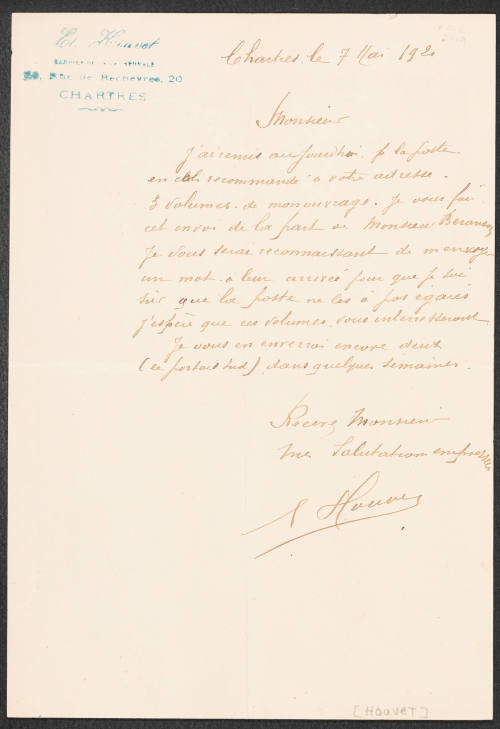 Et. Houvet
20, Rue de Rechevres, 20
CHARTRES
Chartres le 7 Mai 192
Monsieur
J'ai remis aujourdhui p la poste
en recommandé a votre adresse.
3 volumes de mon ouvrage. Je vous fai
cet envoi de la part de Monsieur
Je vous serai reconnaissant de m envoye
un mot a leur arrivée pour que je soi
sur que la poste ne les a pas égarés
j'espère que ces volumes vous interresseront
Je vous en enverrai encore deux
(le portail sud) dans quelques semaines.
Recevez Monsieur
mes Salutation empressées
E Houvet
[HOUVET]